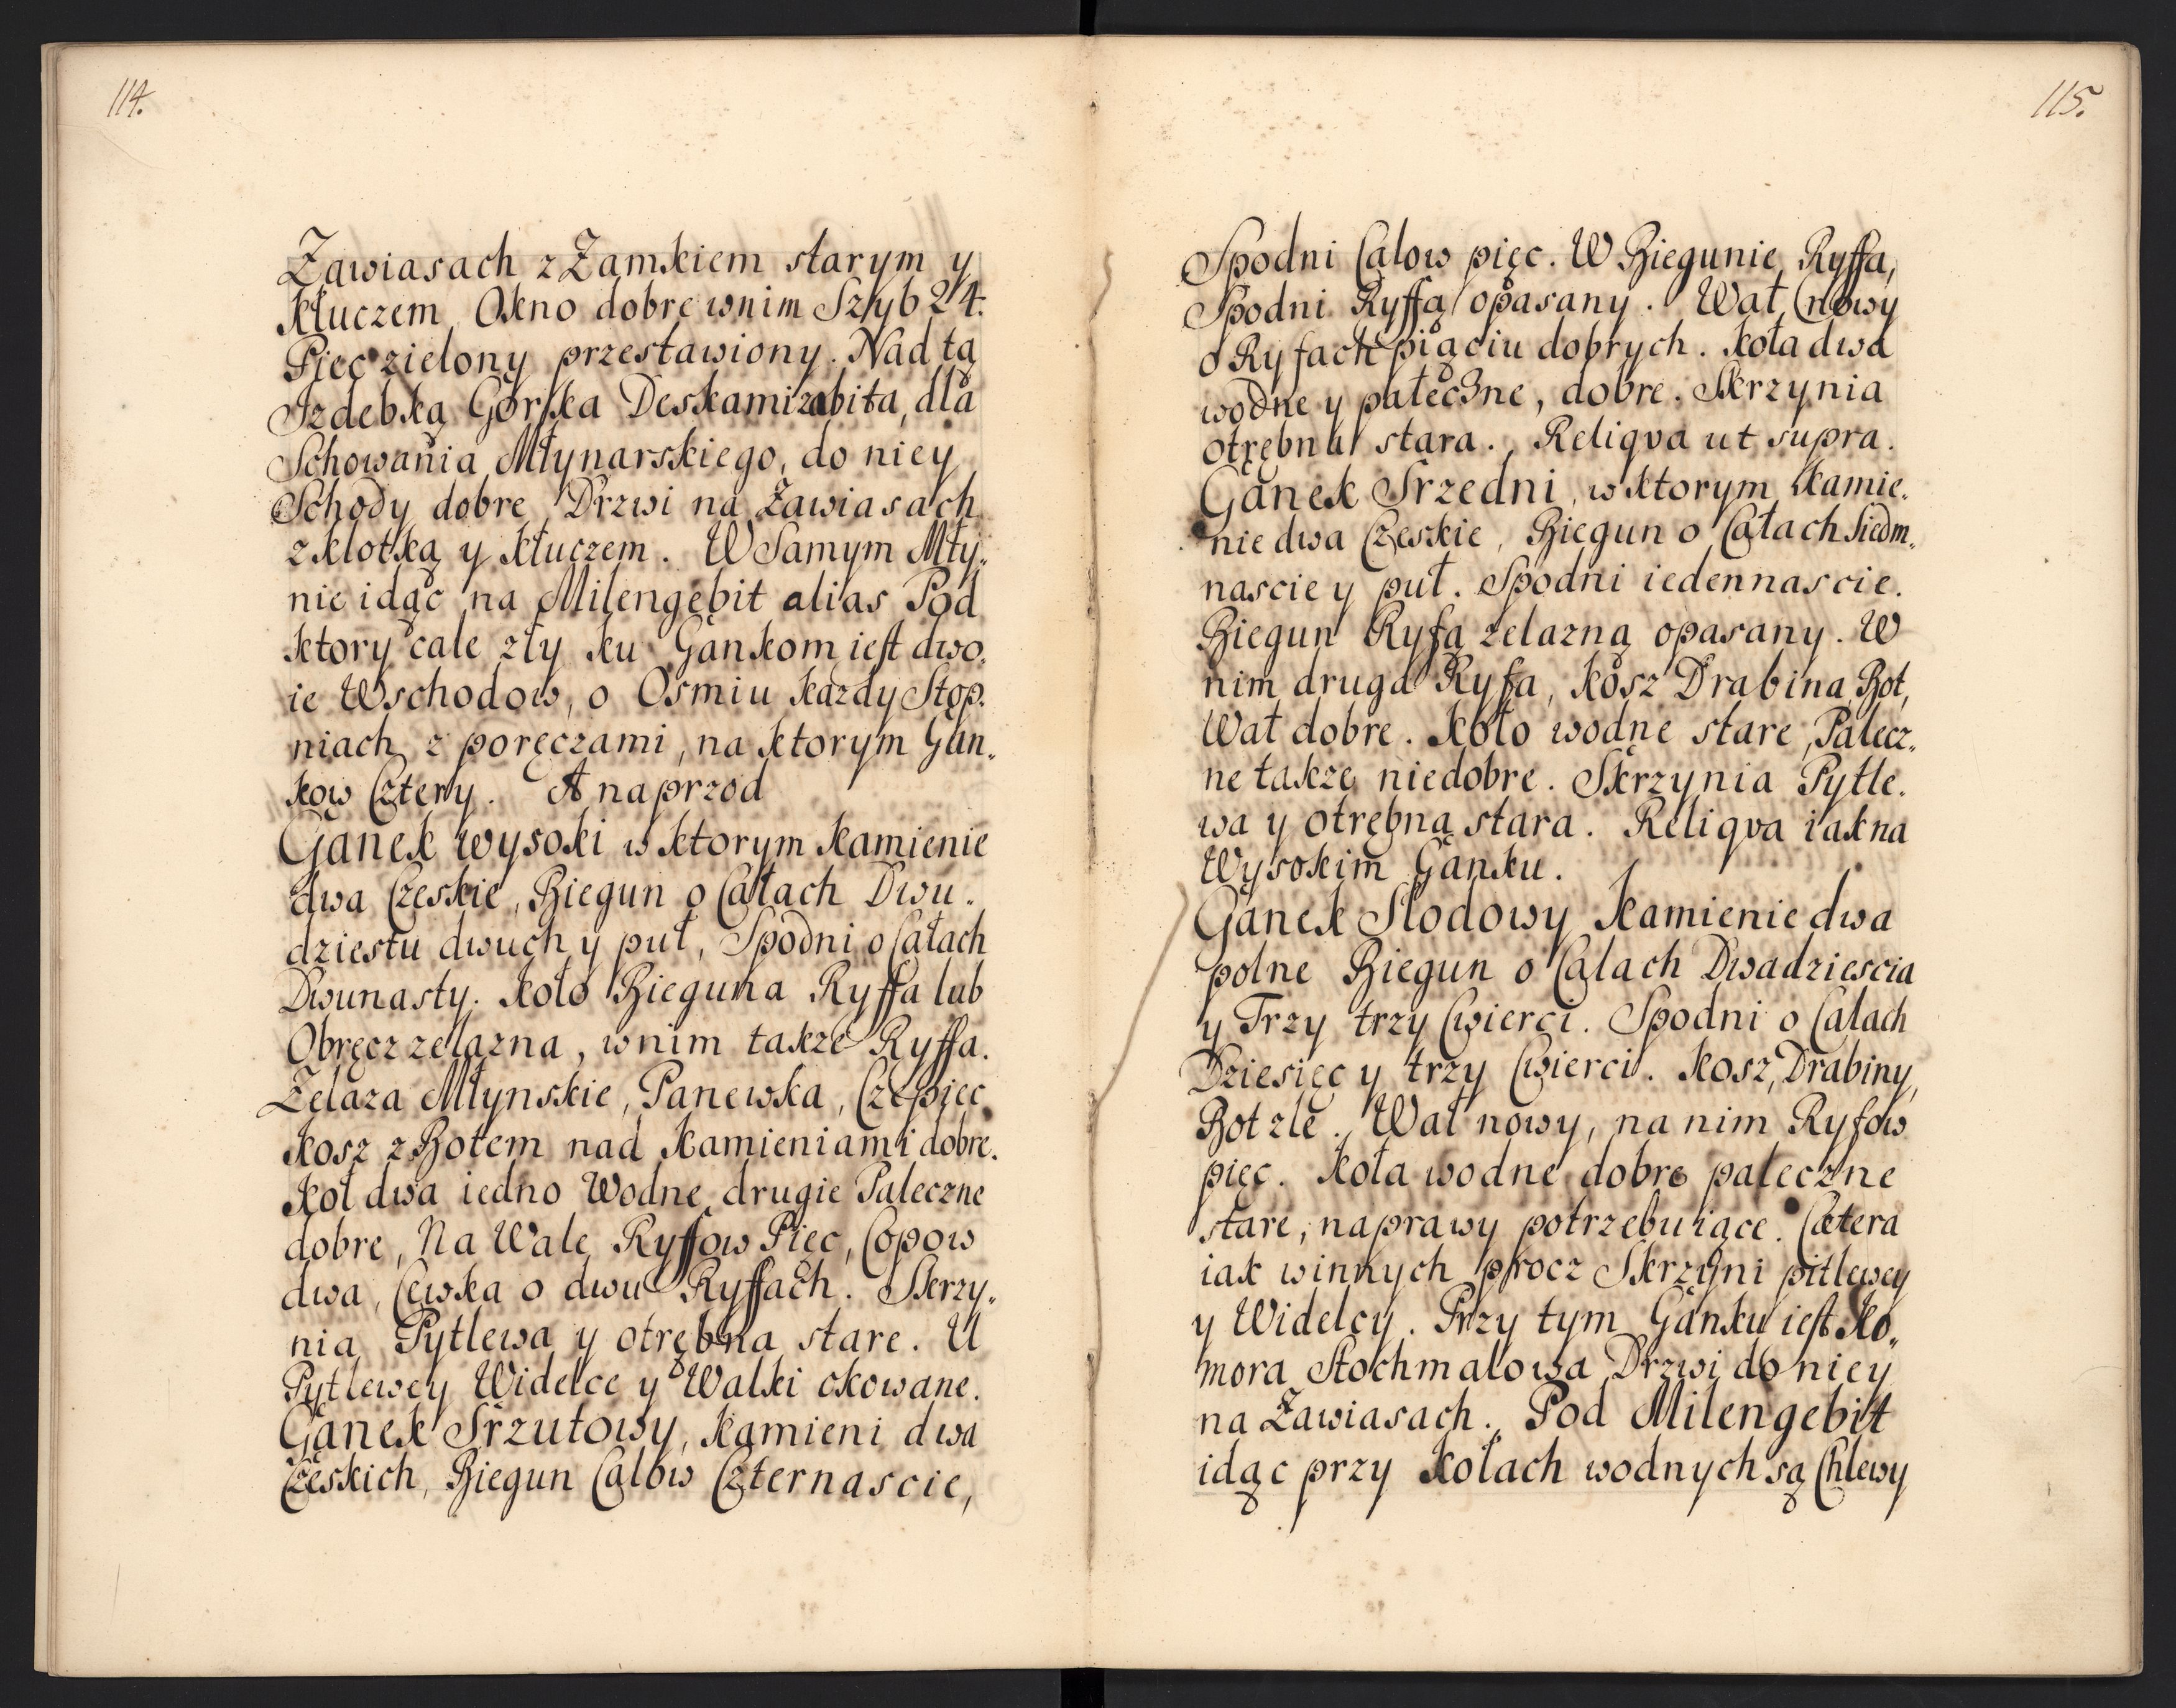 114.
Zawiasach z Zamkiem starym y
Kluczem, Okno dobre wnim Szyb 24.
Piec zielony przestawiony. Nad tą
Izdebką Gorka Deskami zabita, dla
Schowania Młynarskiego, do niey
Schody dobre, Drzwi na Zawiasach
z Klotką y Kłuczem. W Samym Mły„
nie idąc na Milengebit alias Pod
ktory cale zły ku Gankom iest dwo„
ie Wschodow, o Osmiu każdy Stop„
niach z poręczami, na ktorym Gan„
kow Cztery. A naprzod
Ganek wysoki w ktorym Kamienie
dwa Czeskie, Biegun o Całach Dwu„
dziestu dwuch y puł, Spodni o Całach
Dwunasty. Koło Bieguna Ryffa lub
Obręcz zelazna, wnim takze Ryffa.
Zelaza Młynskie, Panewka, Czepiec,
Kosz z Botem nad Kamieniami dobre.
Koł dwa iedno Wodne, drugie Paleczne
dobre, Na Wale Ryffow Pięc, Copow
dwa, Cewka o dwu Ryffach. Skrzy„
nia Pytlewa y otrębna stare. U
Pytlewey Widelce y Walki okowane.
Ganek Srzutowy, Kamieni dwa
Czeskich, Biegun Calow Czternascie,
115.
Spodni Calow pięc. W Biegunie Ryffa,
Spodni Ryffą opasany. Wał nowy
o Ryfach piąciu dobrych. Koła dwa
wodne y pałeczne, dobre. Skrzynia
otrębna stara. Reliqva ut supra.
Ganek Srzedni, w ktorym Kamie„
nie dwa Czeskie, Biegun o Całach Siedm„
nascie y puł. Spodni iedennascie.
Biegun Ryfą zelazną opasany. W
nim druga Ryfa, Kosz Drabina, Bot,
Wał dobre. Koło wodne stare, Palecz„
ne takze niedobre. Skrzynia Pytle„
wa y otrębna stara. Reliqva iak na
Wysokim Ganku.
Ganek Slodowy Kamienie dwa
polne Biegun o Calach Dwadziescia
y Trzy trzy Cwierci. Spodni o Calach
Dziesięc y trzy Cwierci. Kosz, Drabiny,
Bot zle. Wał nowy, na nim Ryfow
pięc. Koła wodne dobre paleczne
stare, naprawy potrzebuiące. Cætera
iak winnych procz Skrzyni pitlewey
y Widelcy. Przy tym Ganku iest Ko„
mora Stochmalowa Drzwi do niey
na Zawiasach. Pod Milengebit
idąc przy Kołach wodnych są Chlewy